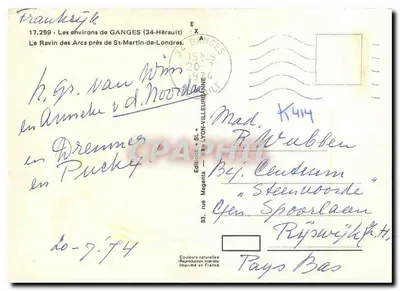 Frankrijk
17.259 - Les environs de GANGES (34-Hérault)
Le Ravin des Arcs près de St-Martin-de-Londres.
E
X
34 GANGES
20 - 7
1974
h. gr. van Wim
en Anneke v. d. Noordaa
en
en Pucky
20-7-'74
Editions "SL"
83, rue Magenta - 69 - LYON-VILLEURBANNE
K414
Mad.
R. Wubben
Bej. Centrum
"Steenvoorde"
Gen. Spoorlaan
Rijswijk Z.H.
Pays Bas
Couleurs naturelles
Reproduction interdite
Imprimé en France
CPAPHIL